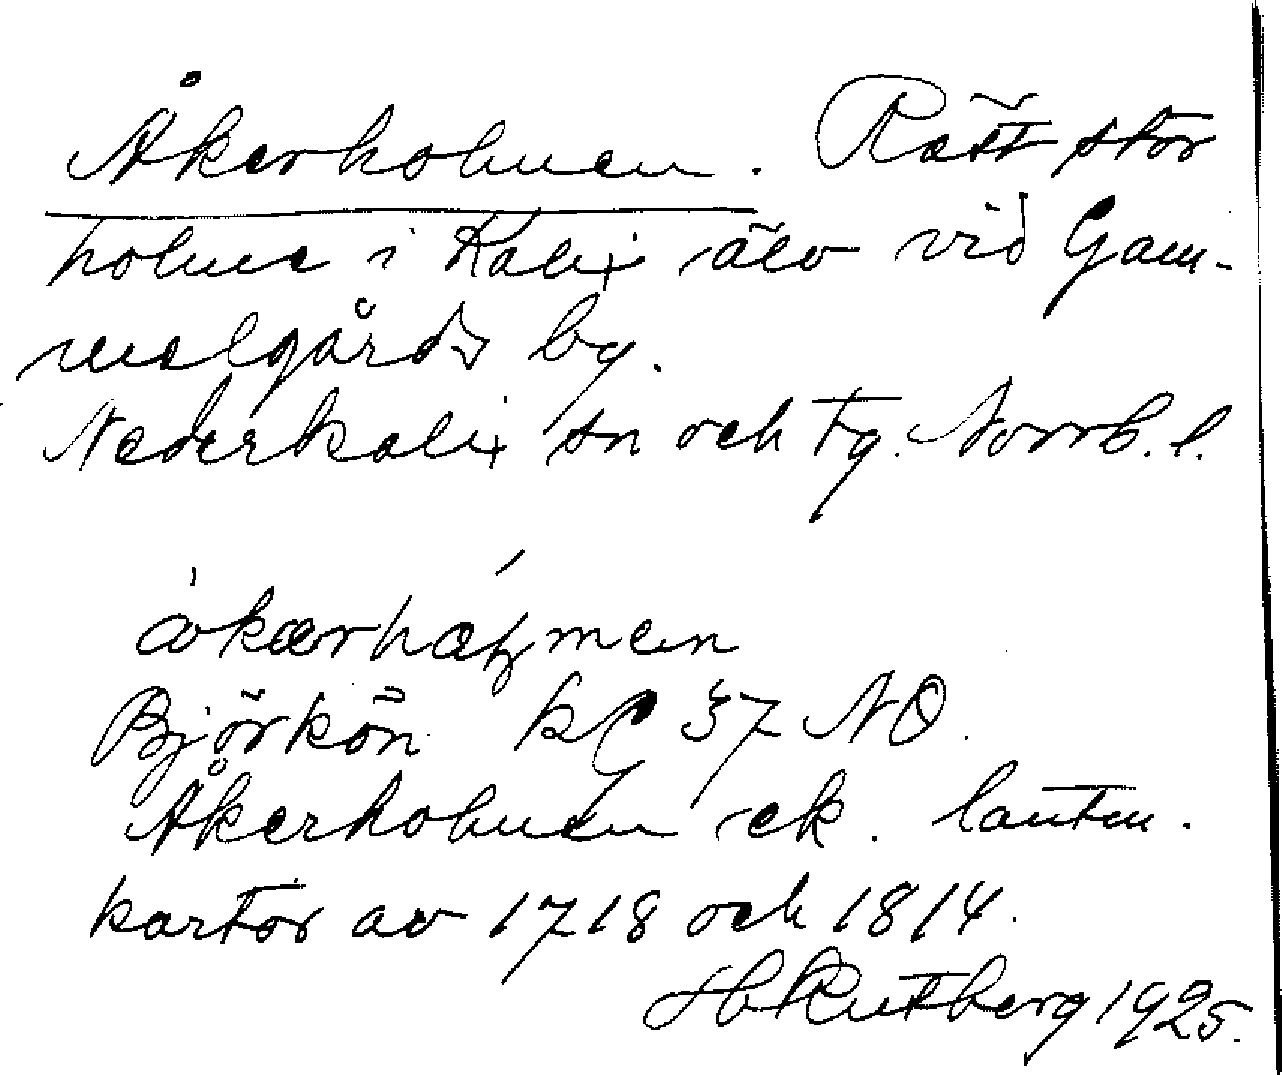 Åkerholmen. Rätt stor
holme i Kalix älv vid Gam-
melgårds by.
Nederkalix sn och tg. Norrb. l.
Björkön kg 37 NO.
Åkerholmen ek. lantm.
kartor av 1718 och 1814.
H Rutberg 1925.